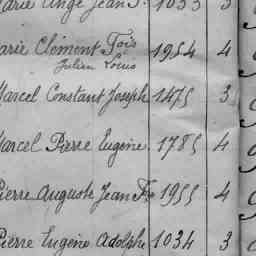 arie Ange Jean F. 1035 3
arie Clément Fois 1954 4
Julien Louis
Marcel Constant Joseph 1475 3
Marcel Pierre Eugène 1785 4
Pierre Auguste Jean Fx 1955 4
Pierre Eugène Adolphe 1034 3